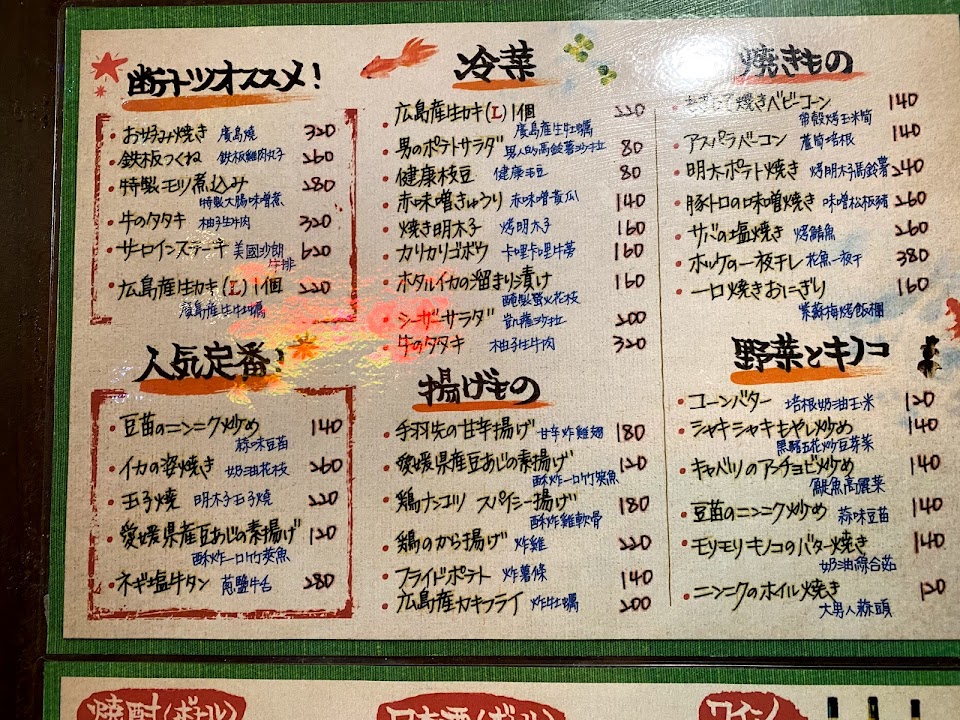 断トツオススメ!
お好み焼き 廣島燒 320
鉄板つくね 鉄板雞肉丸子 260
特製モツ煮込み 280
特製大腸味噌煮
牛のタタキ 柚子生牛肉 320
サーロインステーキ 美國沙朗牛排 620
広島産生カキ(L)1個 220
廣島産生牡蠣
人気定番!
豆苗のニンニク炒め 140
蒜味豆苗
イカの姿焼き 奶油花枝 260
玉子焼 明太子玉子燒 220
愛媛県産豆あじの素揚げ 120
酥炸一口竹筴魚
ネギ塩牛タン 蔥鹽牛舌 280
冷菜
広島産生カキ(L)1個 220
廣島産生牡蠣
男のポテトサラダ 男人的馬鈴薯沙拉 80
健康枝豆 健康毛豆 80
赤味噌きゅうり 赤味噌黃瓜 140
焼き明太子 烤明太子 160
カリカリゴボウ 卡哩卡哩牛蒡 160
ホタルイカの溜まり漬け 160
醃製螢火花枝
シーザーサラダ 凱薩沙拉 200
牛のタタキ 柚子生牛肉 320
揚げもの
手羽先の甘辛揚げ 甘辛炸雞翅 180
愛媛県産豆あじの素揚げ 120
酥炸一口竹筴魚
鶏ナンコツ スパイシー揚げ 180
酥炸雞軟骨
鶏のから揚げ 炸雞 220
フライドポテト 炸薯條 140
広島産カキフライ 炸牡蠣 200
焼きもの
焼きベビーコーン 140
帶殼烤玉米筍
アスパラベーコン 蘆筍培根 140
明太ポテト焼き 烤明太子馬鈴薯 240
豚トロの味噌焼き 味噌松板豬 260
サバの塩焼き 烤鯖魚 260
ホッケの一夜干し 花魚一夜干 380
一口焼きおにぎり 160
紫蘇梅烤飯糰
野菜とキノコ
コーンバター 培根奶油玉米 120
シャキシャキもやし炒め 140
黑豬五花炒豆芽菜
キャベツのアンチョビ炒め 140
鯷魚高麗菜
豆苗のニンニク炒め 蒜味豆苗 140
モリモリキノコのバター焼き 140
奶油綜合菇
ニンニクのホイル焼き 120
大男人蒜頭
焼酎(ボトル)
日本酒(ボトル)
ワイン